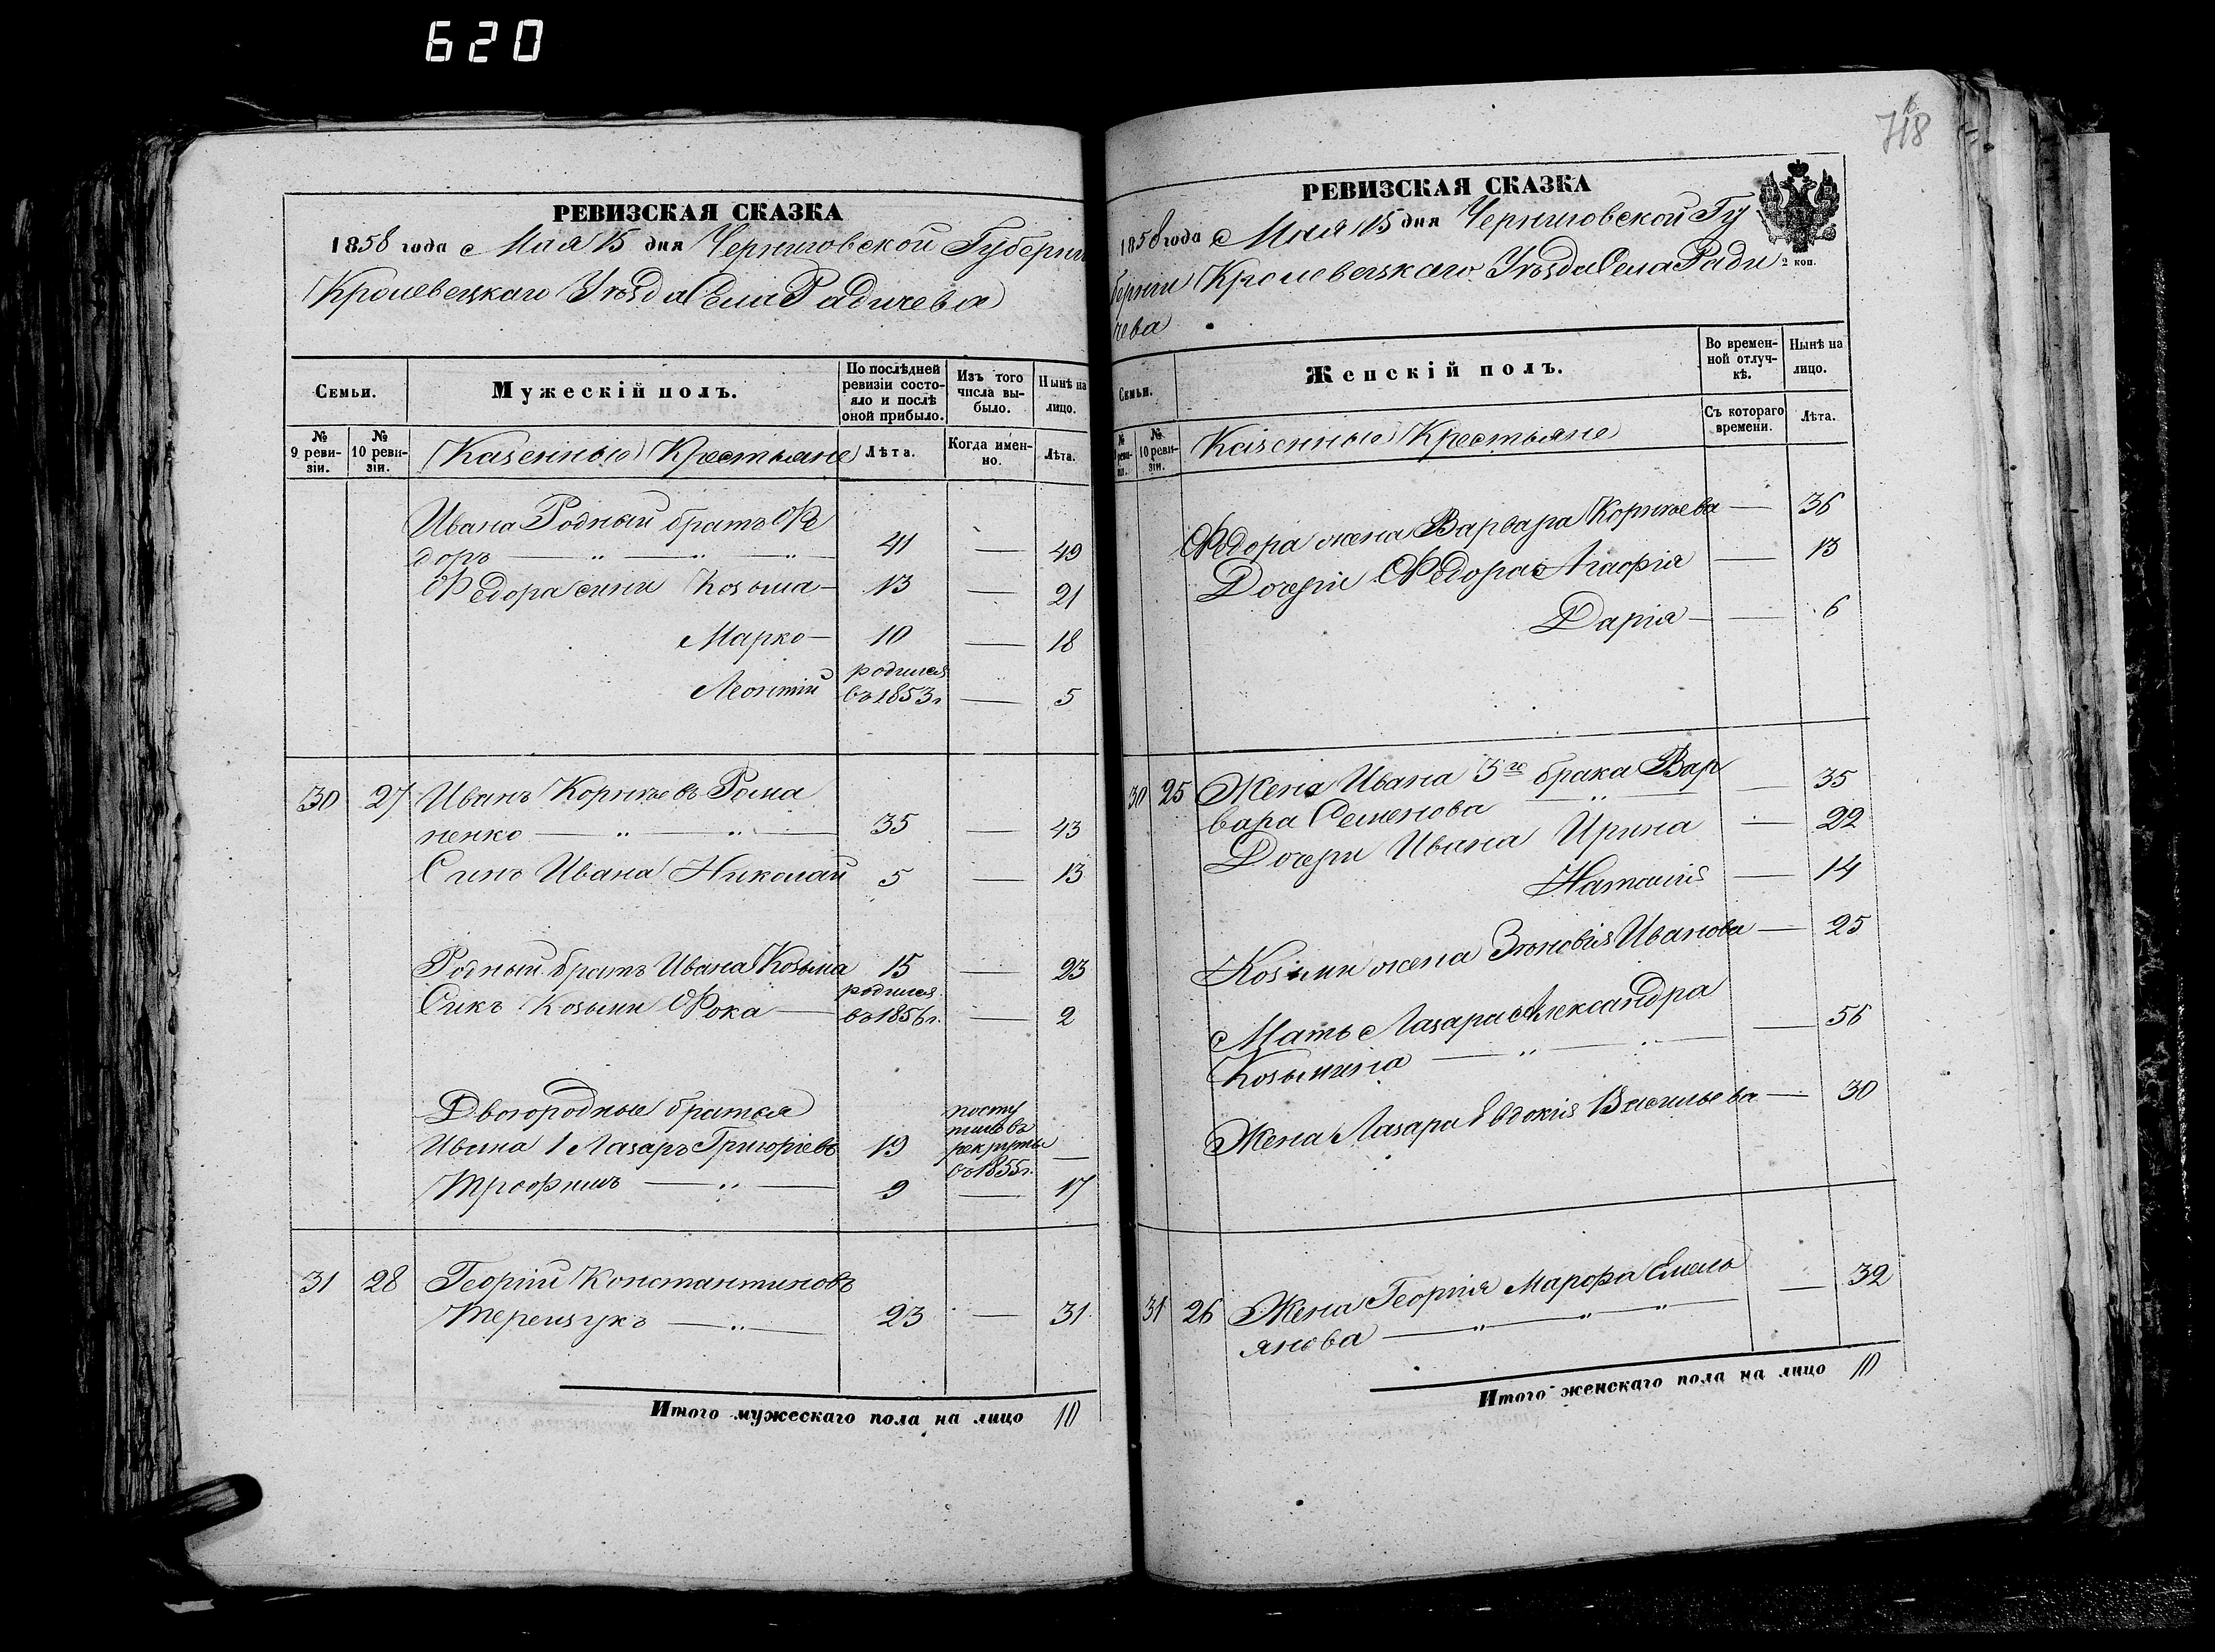 620
718
РЕВИЗСКАЯ СКАЗКА
1858 года Мая 15 дня Черниговской Губерніи
Кролевецкаго Уѣзда Села Радичева
Семьи.
Мужескій полъ.
По послѣдней ревизіи состояло и послѣ оной прибыло.
Изъ того числа выбыло.
Нынѣ на лицо.
№ 9 ревизіи.
№ 10 ревизіи.
Казенные Крестьяне
Лѣта.
Когда именно.
Лѣта.
Ивана Родный братъ Фе
доръ — „ — „ — „ 41 — 49
Федора сини Козьма — 13 — 21
Марко — 10 — 18
Леонтій родился въ 1853 г. — 5
30 27 Иванъ Корнѣевъ Рома
ненко — „ — „ — 35 — 43
Синъ Ивана Николай 5 — 13
Родный братъ Ивана Козьма 15 — 23
Синъ Козьми Фока — родился въ 1856 г. — 2
Двоюродные братья
Ивана 1 Лазаръ Григоріевъ 19 поступилъ въ рекруты въ 1855 г. —
Трофимъ — „ — 9 — 17
31 28 Георгій Константиновъ
Терещукъ — „ — 23 — 31
Итого мужескаго пола на лицо 10
РЕВИЗСКАЯ СКАЗКА
1858 года Мая 15 дня Черниговской Гу
берніи Кролевецкаго Уѣзда Села Ради
чева
2 коп.
Семьи.
Женскій полъ.
Во временной отлучкѣ.
Нынѣ на лицо.
№ 10 ревизіи.
Казенные Крестьяне
Съ котораго времени.
Лѣта.
Федора жена Варвара Корнѣева — 36
Дочери Федора Агафія — 13
Дарія — — 6
30 25 Жена Ивана 3го брака Вар
вара Семенова — „ — — 35
Дочери Ивана Ирина — 22
Наталія — 14
Козьми жена Зѣновія Иванова — 25
Мать Лазара Александра
Козьмина — „ — — 56
Жена Лазара Евдокія Васильева — 30
31 26 Жена Георгія Марфа Емель
янова — „ — „ — „ — 32
Итого женскаго пола на лицо 10